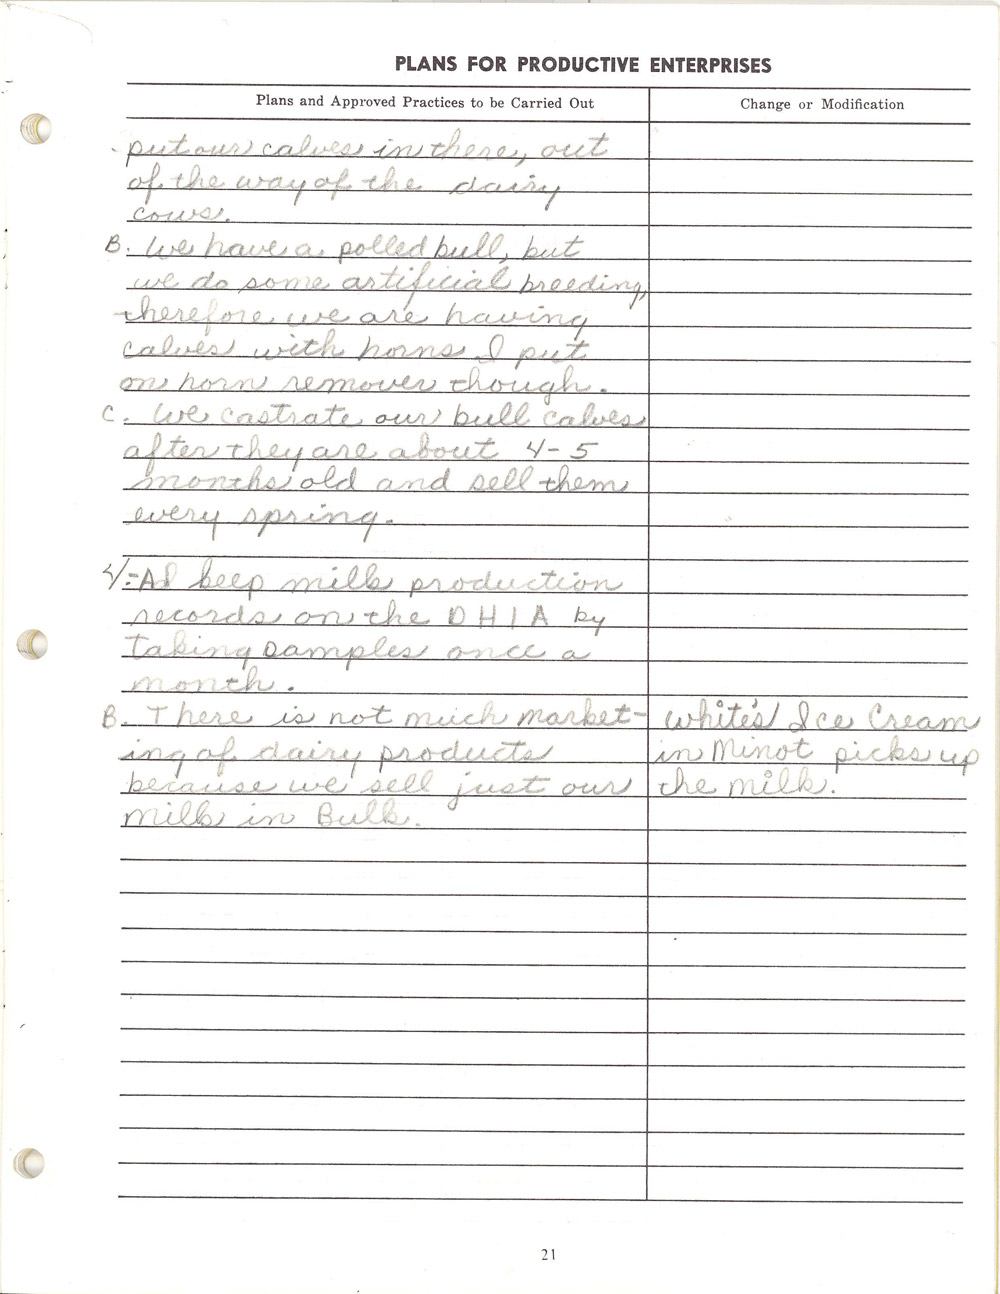 PLANS FOR PRODUCTIVE ENTERPRISES
Plans and Approved Practices to be Carried Out
Change or Modification
put our calves in there, out
of the way of the dairy
cows.
B. We have a polled bull, but
we do some artificial breeding,
therefore we are having
calves with horns I put
on horn remover though.
C. We castrate our bull calves
after they are about 4-5
months old and sell them
every spring.
V:-A I keep milk production
records on the DHIA by
taking samples once a
month.
B. There is not much market-
ing of dairy products
because we sell just our
milk in Bulk.
White's Ice Cream
in Minot picks up
the milk.
21